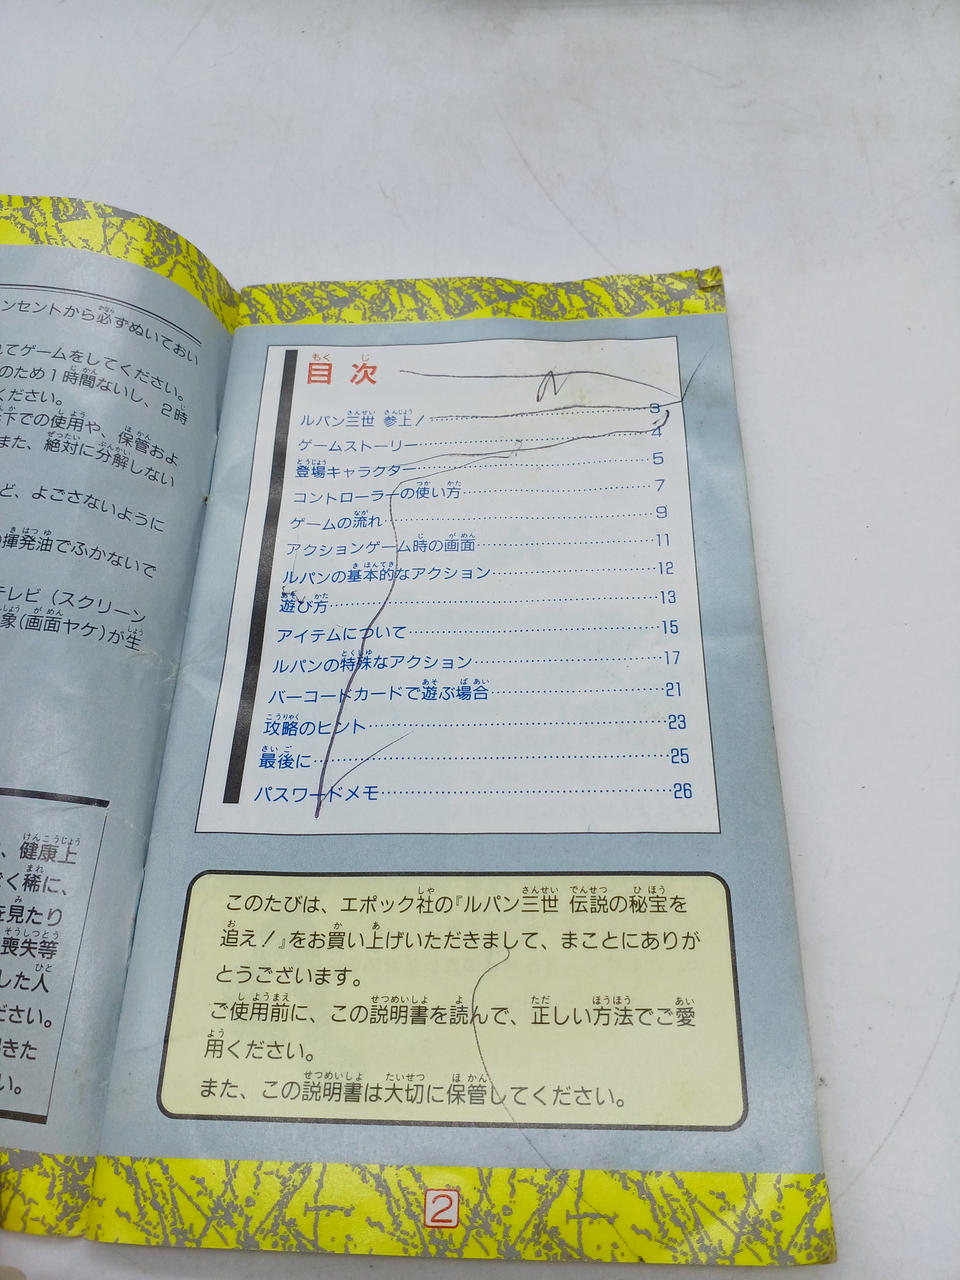 ンセントから必ずぬいておい
てゲームをしてください。
のため1時間ないし、2時
ください。
下での使用や、保管およ
また、絶対に分解しない
ど、よごさないように
揮発油でふかないで
テレビ（スクリーン
象(画面ヤケ)が生
、健康上
く稀に、
を見たり
喪失等
した人
ださい。
きた
い。
目次
ルパン三世 参上！ 3
ゲームストーリー 4
登場キャラクター 5
コントローラーの使い方 7
ゲームの流れ 9
アクションゲーム時の画面 11
ルパンの基本的なアクション 12
遊び方 13
アイテムについて 15
ルパンの特殊なアクション 17
バーコードカードで遊ぶ場合 21
攻略のヒント 23
最後に 25
パスワードメモ 26
このたびは、エポック社の『ルパン三世 伝説の秘宝を
追え！』をお買い上げいただきまして、まことにありが
とうございます。
ご使用前に、この説明書を読んで、正しい方法でご愛
用ください。
また、この説明書は大切に保管してください。
2